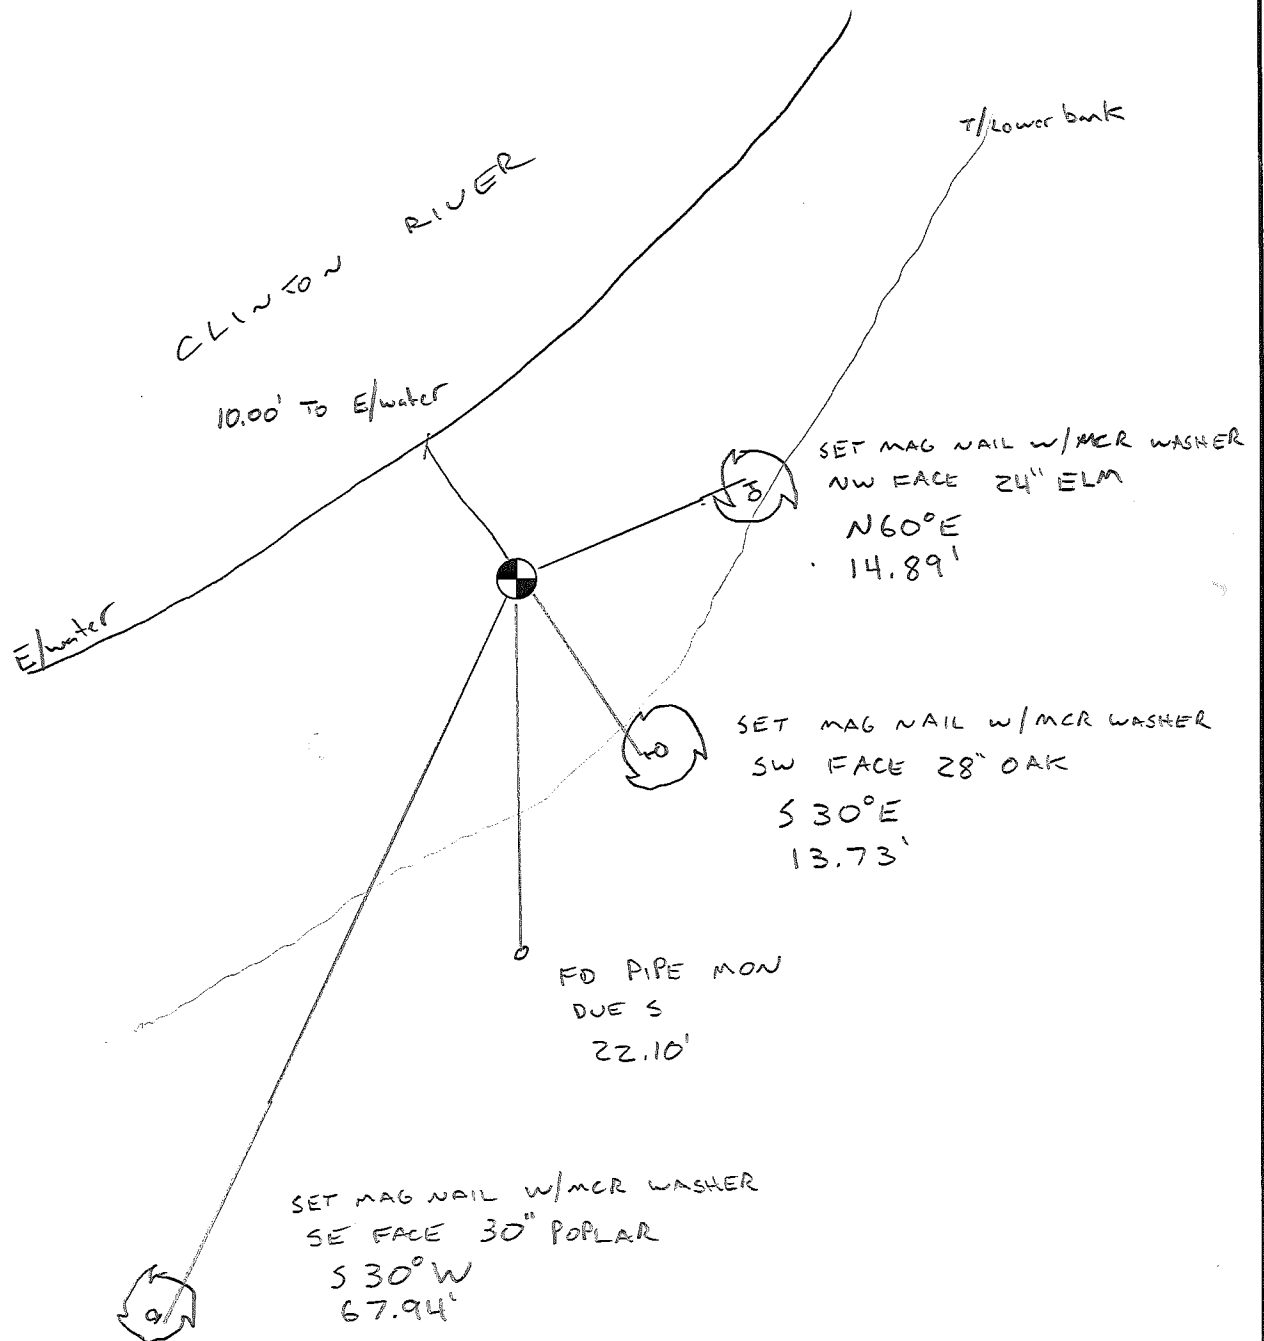 T/Lower bank
CLINTON RIVER
10.00' TO E/water
SET MAG NAIL W/MCR WASHER
NW FACE 24" ELM
N60°E
14.89'
E/water
SET MAG NAIL W/MCR WASHER
SW FACE 28" OAK
S 30°E
13.73'
FD PIPE MON
DUE S
22.10'
SET MAG NAIL W/MCR WASHER
SE FACE 30" POPLAR
S 30°W
67.94'